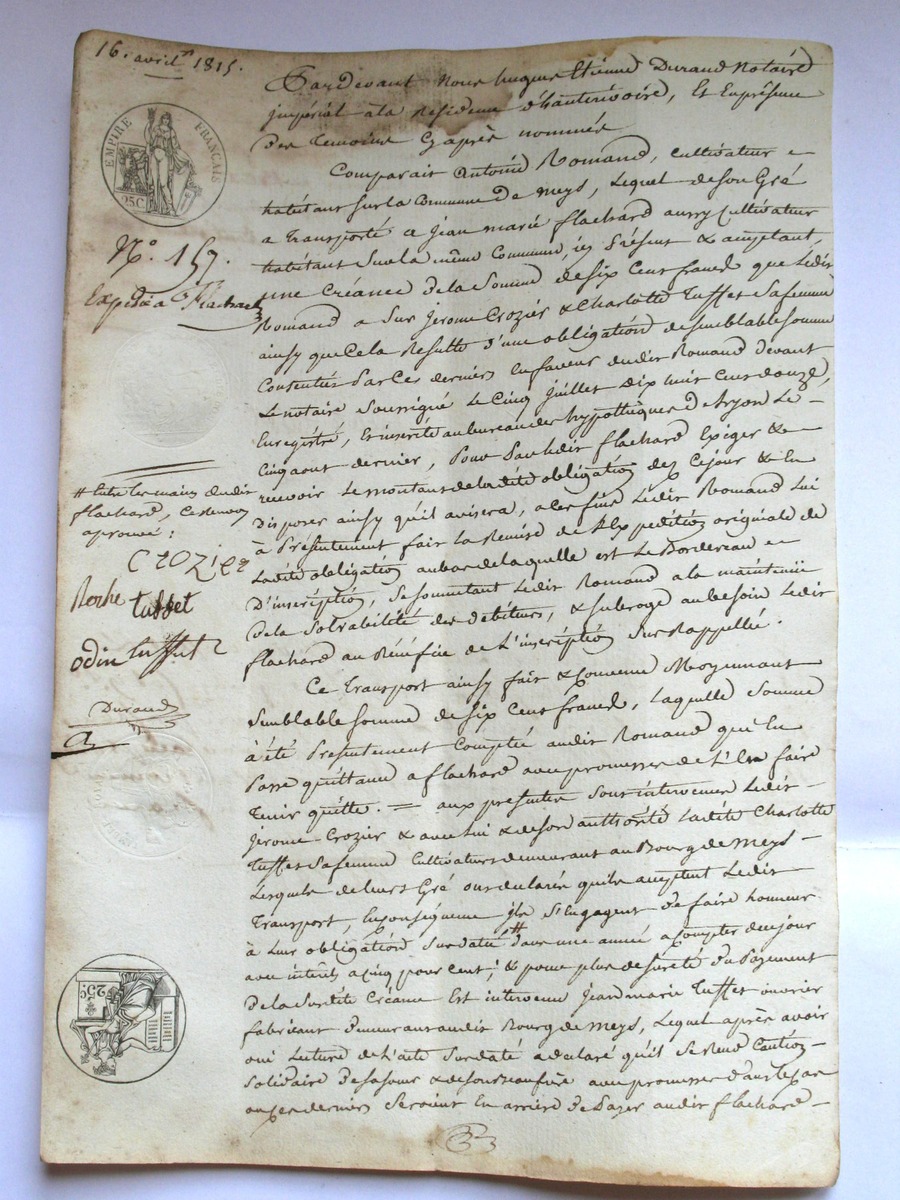 16. avril 1815.
EMPIRE FRANÇAIS
25C
N.º 157.
Expédié a Flachard
# Entre les mains dudit
flachard, ce renvoy
aprouvé :
Crozier
tuffet
odin tuffet
Durand
25C
Pardevant Nous hugues Etienne Durand Notaire
impérial à la Résidence d'hauterivoire, Et En présence
Des Temoins Cy après nommés
Comparait Antoine Romand, Cultivateur
habitant sur la Commune De meys, Lequel de son Gré
a Transporté a jean marie flachard aussy Cultivateur
habitant Sur la même Commune, icy présent & acceptant,
une Créance De la Somme de six Cent francs que Ledit
Romand a Sur jerome Crozier & Charlotte Tuffet Sa femme
ainsy que Cela Resulte d'une obligation de semblable somme
Consentie Par Ces derniers En faveur dudit Romand Devant
Le notaire Soussigné Le Cinq juillet dix huit Cent douze,
Enregistré, Et inscrite au bureau des hypothèques De Lyon Le
Cinq aout dernier, Pour Par Ledit flachard Exiger &
recevoir Le montant de la dite obligation dez Cejour & En
Disposer ainsy qu'il avisera, a Ces fins Ledit Romand Lui
à Présentement fait La Remise de L'Expedition originale de
Ladite obligation au bas de laquelle est Le Bordereau
D'inscription, Se soumettant Ledit Romand a la maintenüe
De la Solvabilité des débiteurs, & subroge au besoin Ledit
flachard au Bénéfice de L'inscription Sus Rappellée.
Ce Transport ainsy fait & Convenu Moyennant
Semblable somme de six Cent francs, Laquelle Somme
à été Présentement Comptée audit Romand qui En
Passe quittance a flachard avec promesse de L'En faire
Tenir quitte. = aux présentes Sont intervenus Ledit
jerome Crozier & avec Lui & de son authorité Ladite Charlotte
Tuffet Sa femme Cultivateurs demeurant au Bourg de Meys
Lesquels de leurs Gré ont déclaré qu'ils acceptent Ledit
Transport, En conséquence ils S'Engagent De faire honneur
à Leur obligation Sus datée # dans une année a Compter de ce jour
avec intérêts a cinq pour cent, & pour plus de sureté du Payement
De la Susdite Créance Est intervenu Jean marie Tuffet ouvrier
fabricant Demeurant audit Bourg de Meys, Lequel après avoir
oui Lecture de L'acte Sus daté a déclaré qu'il Se Rend Caution
Solidaire De sa sœur & de son beaufrère avec promesse dans le cas
ou ces derniers Seroient En arrière De Payer audit flachard